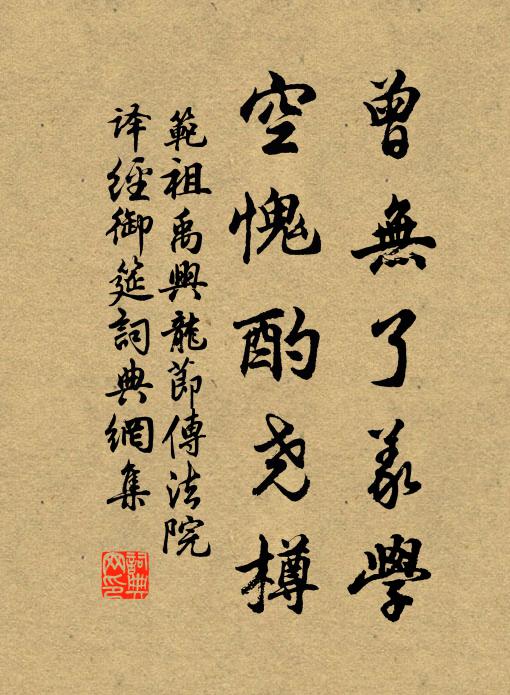 曾無了義學
空愧酌尧樽
範祖禹興龍節傳法院
译經御筵詞典網集
詞典
网印